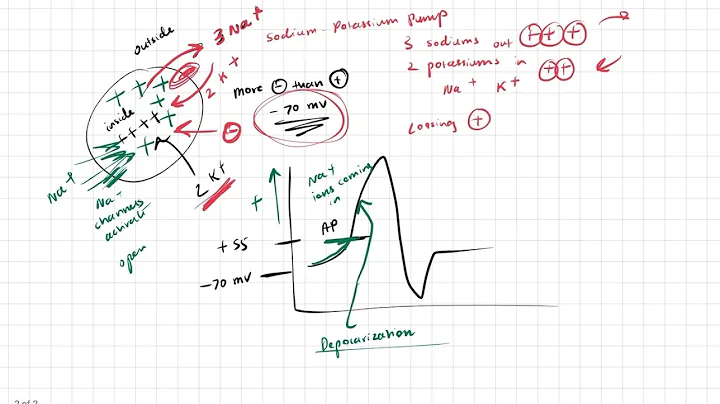 outside
3 Na+
Sodium - Potassium Pump
3 sodiums out + + +
2 potassiums in + +
Na+ K+
Loosing +
2 K+
more - than +
-70 mv
inside
+ + + +
-
Na+
Na+
channels
activate
open
2 K+
+
Na+
ions coming
in
AP
+ 55
-70 mv
Depolarization
2 of 2